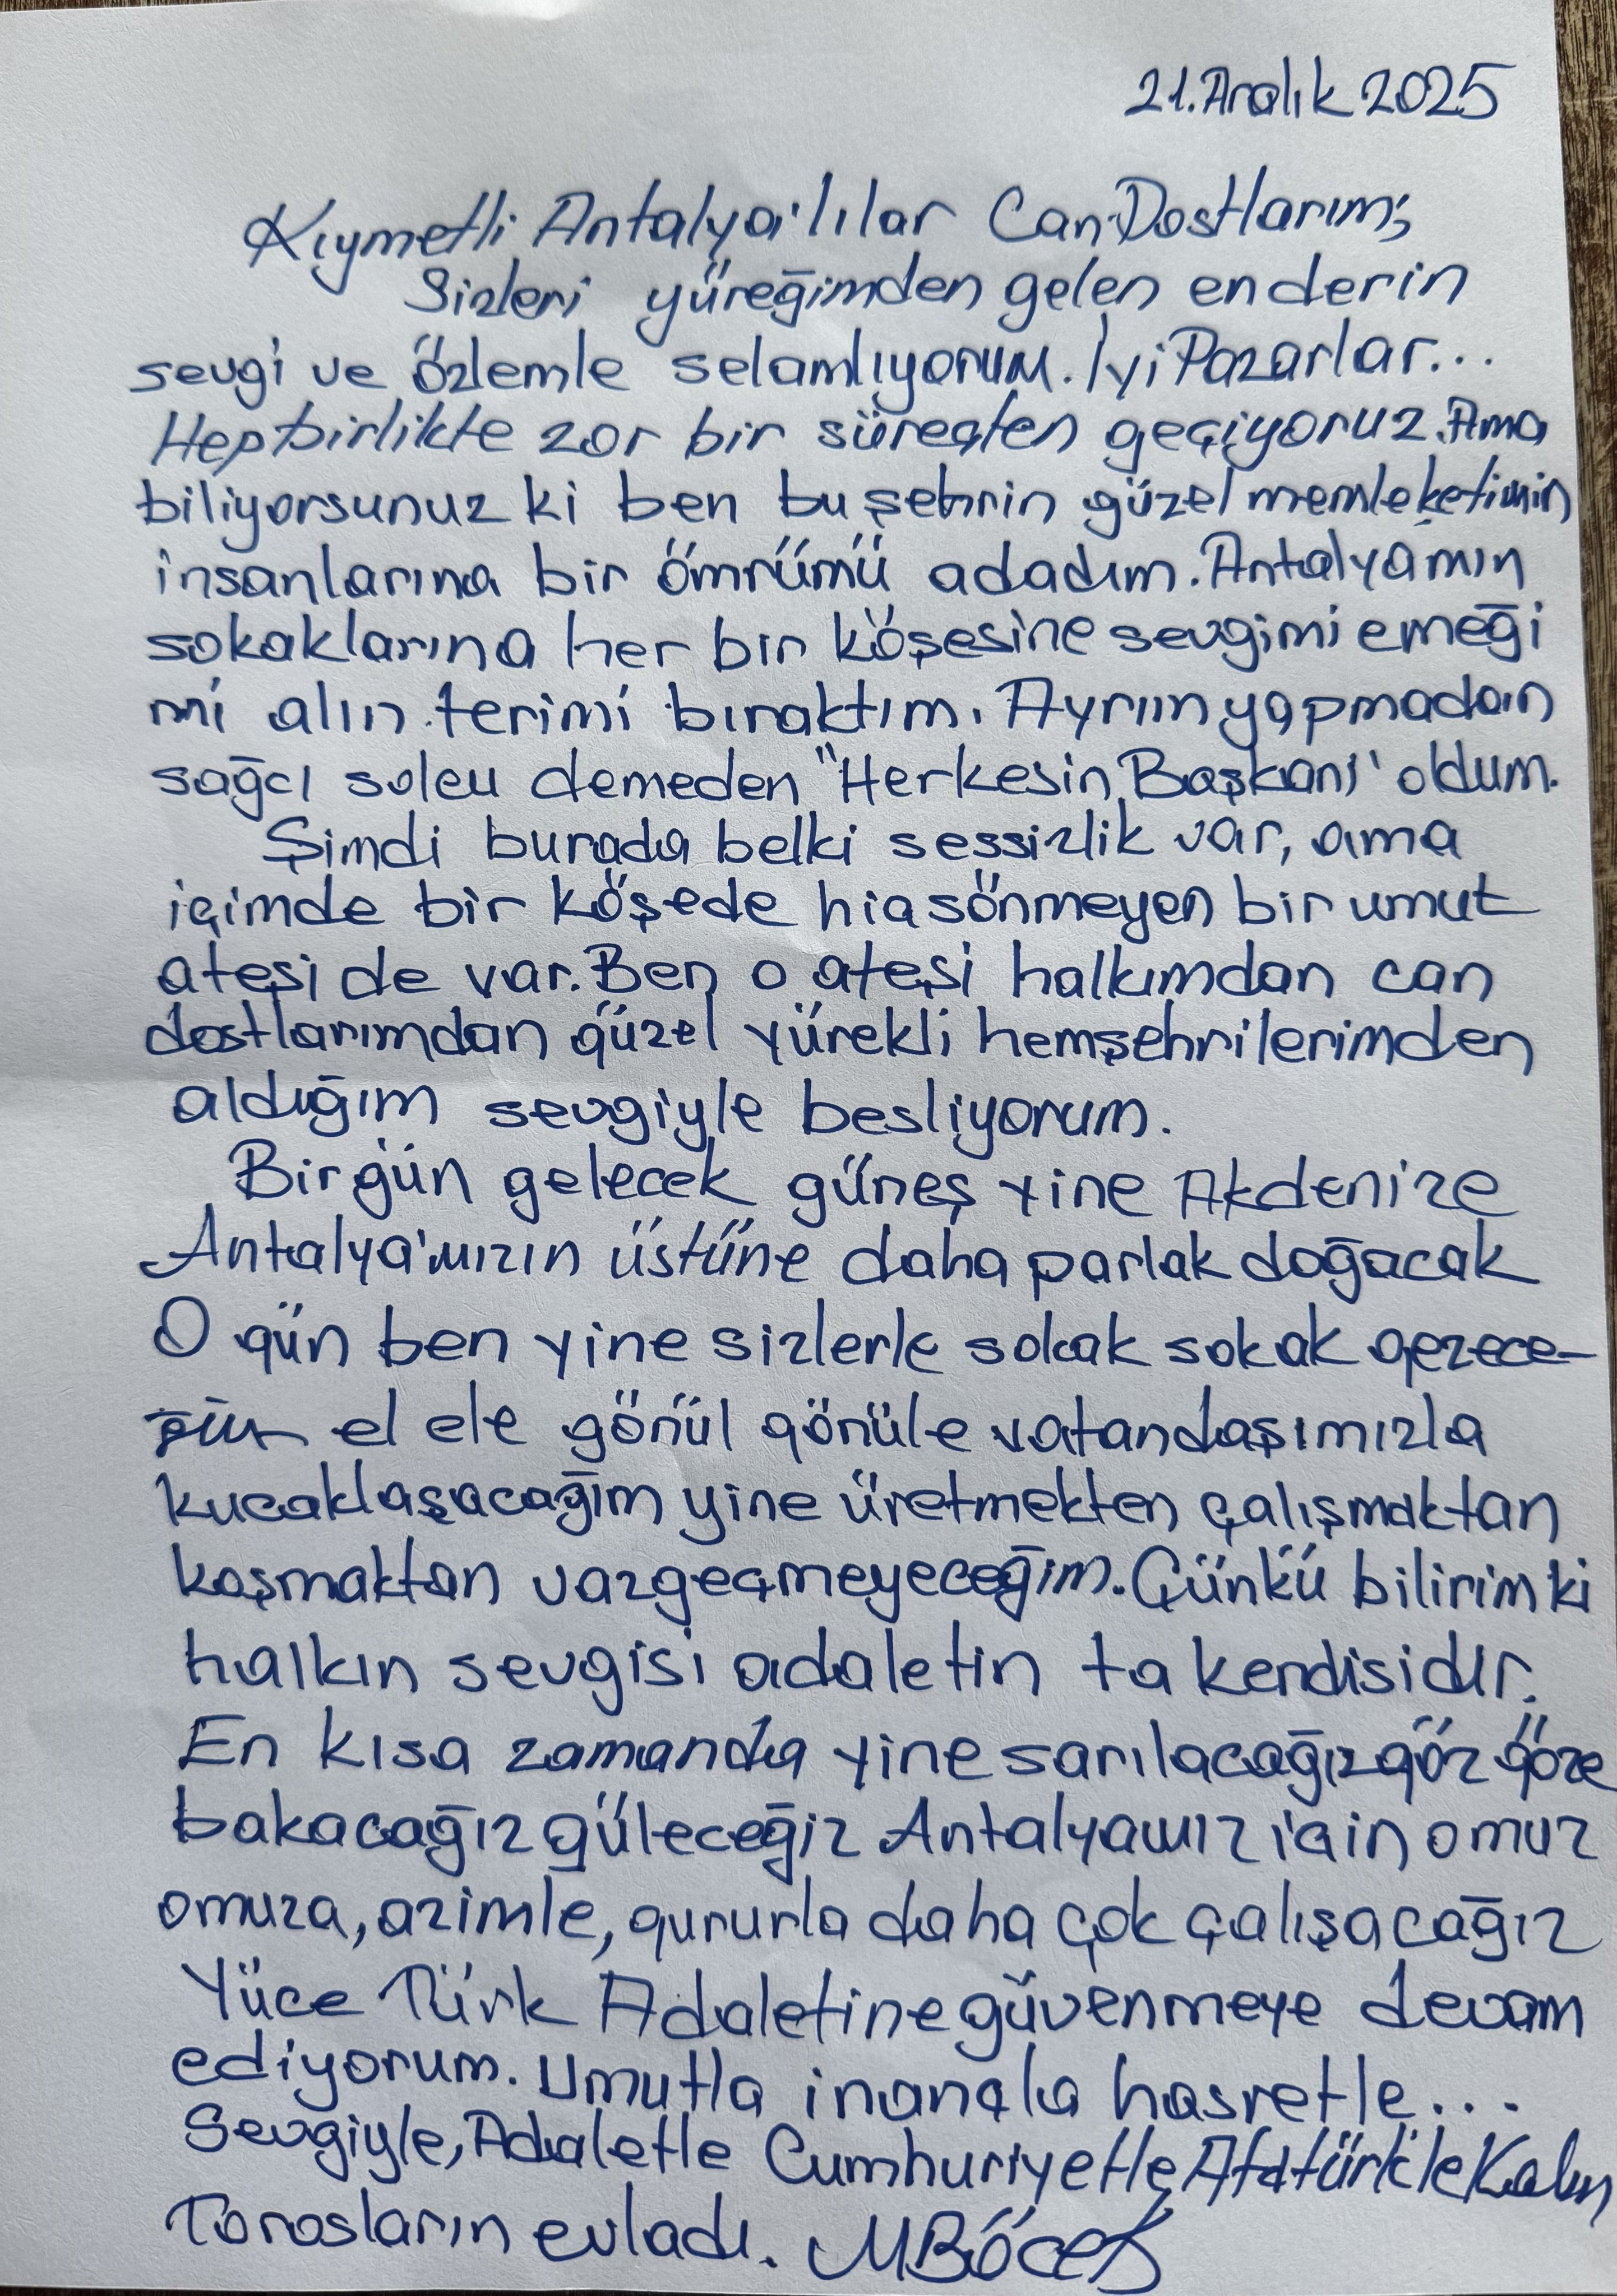 21.Aralık 2025
Kıymetli Antalya'lılar Can Dostlarım;
Sizleri yüreğimden gelen en derin
sevgi ve özlemle selamlıyorum. İyi Pazarlar...
Hep birlikte zor bir süreçten geçiyoruz. Ama
biliyorsunuz ki ben bu şehrin güzel memleketimin
insanlarına bir ömrümü adadım. Antalyamın
sokaklarına her bir köşesine sevgimi emeği
mi alın terimi bıraktım. Ayrım yapmadan
sağcı solcu demeden "Herkesin Başkanı' oldum.
Şimdi burada belki sessizlik var, ama
içimde bir köşede hiç sönmeyen bir umut
ateşi de var. Ben o ateşi halkımdan can
dostlarımdan güzel yürekli hemşehrilerimden
aldığım sevgiyle besliyorum.
Birgün gelecek güneş yine Akdenize
Antalya'mızın üstüne daha parlak doğacak
O gün ben yine sizlerle sokak sokak gezece-
ğim el ele gönül gönüle vatandaşımızla
kucaklaşacağım yine üretmekten çalışmaktan
koşmaktan vazgeçmeyeceğim. Çünkü bilirim ki
halkın sevgisi adaletin ta kendisidir.
En kısa zamanda yine sarılacağız göz göze
bakacağız güleceğiz Antalyamız için omuz
omuza, azimle, gururla daha çok çalışacağız
Yüce Türk Adaletine güvenmeye devam
ediyorum. Umutla inançla hasretle...
Sevgiyle, Adaletle Cumhuriyetle, Atatürk'le Kalın
Torosların evladı. M.Böcek